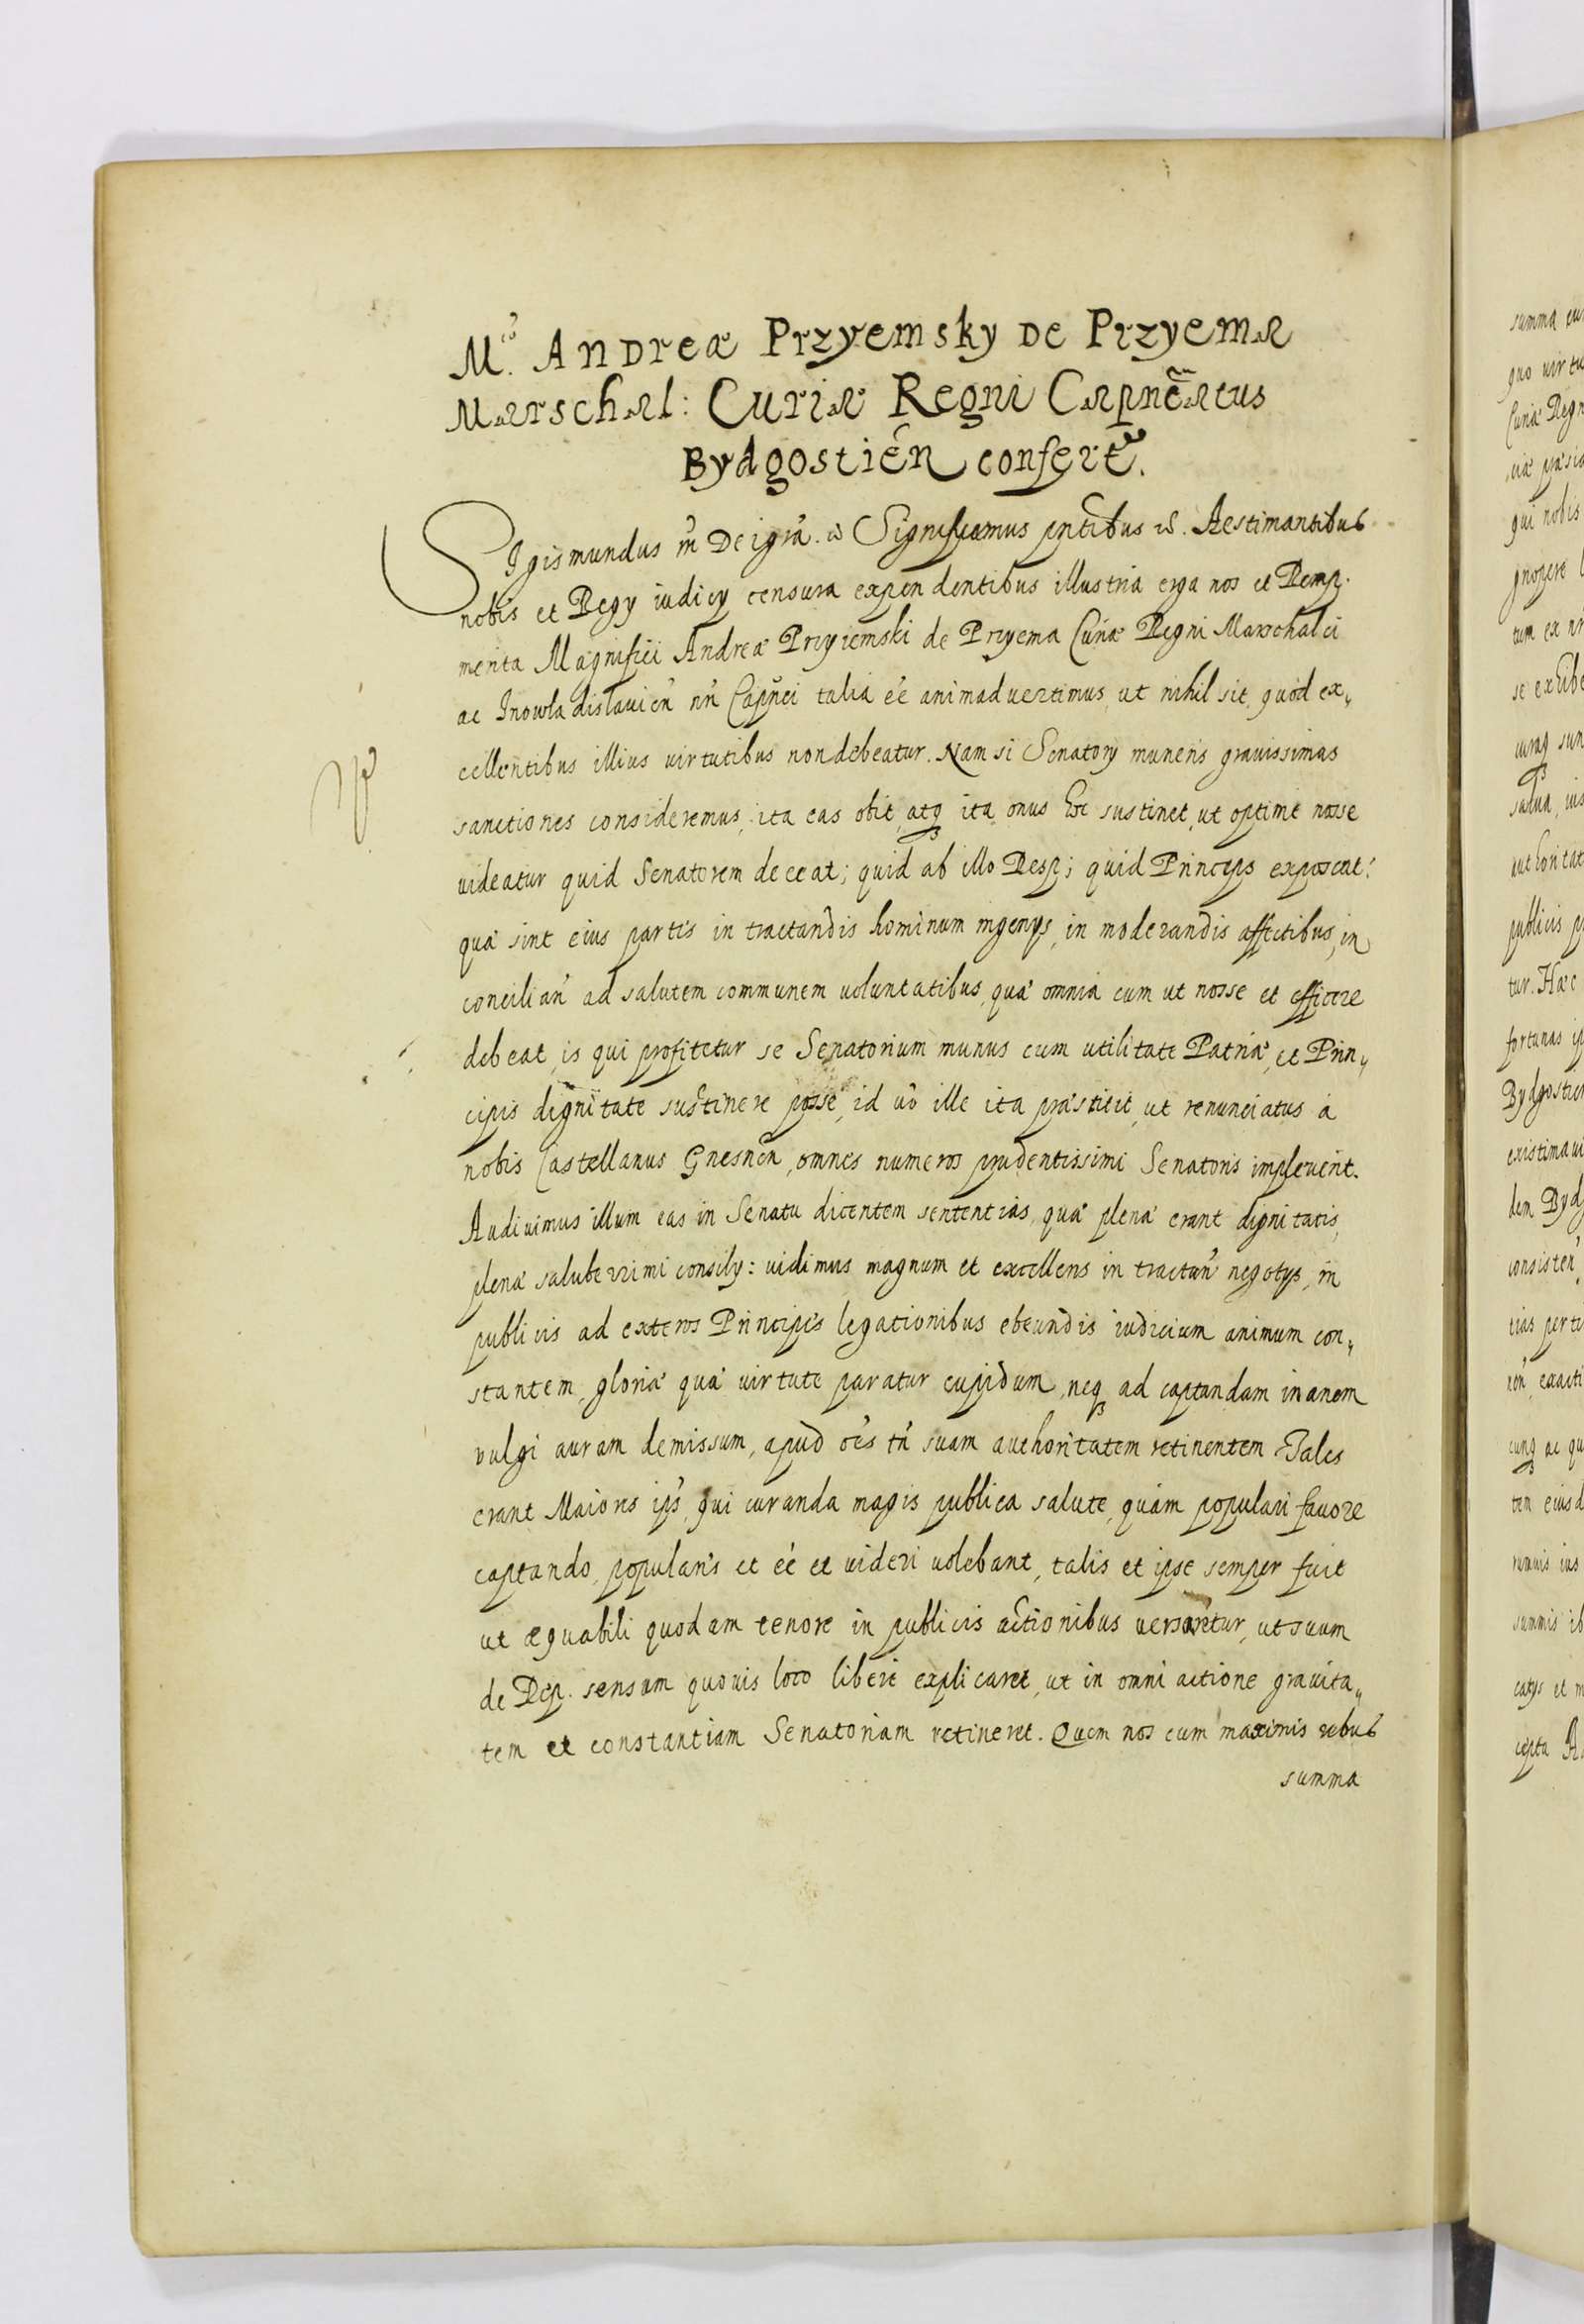 M.co Andreæ Przyemsky de Przyema
Marschal: Curiæ Regni Capnēatus
Bydgostień confertr.
Sigismundus III Dei grã. &c Significamus pntibus &c. Aestimantibus
nobis et Regy iudicy censura expendentibus illustria erga nos et Remp.
merita Magnifici Andreæ Przyiemski de Przyema Curiæ Regni Marschalci
ac Inowladislauień nri Capnei talia eẽ animaduertimus, ut nihil sit, quod ex„
cellentibus illius uirtutibus non debeatur. Nam si Senatory muneris grauissimas
sanctiones consideremus, ita eas obit, atq3 ita onus hoc sustinet, ut optime nosse
uideatur quid Senatorem deceat; quid ab illo Resp; quid Princeps exposcat:
quæ sint eius partes in tractandis hominum ingenys, in moderandis affectibus, in
conciliań ad salutem communem uoluntatibus, quæ omnia cum ut nosse et efficere
debeat, is qui profitetur se Senatorium munus cum utilitate Patriæ, et Prin„
cipis dignitate sustinere posse, id uō ille ita præstitit, ut renunciatus á
nobis Castellanus Gnesneń, omnes numeros prudentissimi Senatoris impleuerit.
Audiuimus illum eas in Senatu dicentem sententias, quæ plenæ erant dignitatis,
plenæ saluberrimi consily: uidimus magnum et excellens in tractań negotys, in
publicis ad exteros Principes legationibus obeundis iudicium animum con„
stantem, gloriæ quæ uirtute paratur cupidum, neq3 ad captandam inanem
vulgi auram demissum, apud oẽs tń suam authoritatem retinentem Tales
erant Maiores ips, qui curanda magis publica salute, quám populari fauore
captando, populares et eẽ et uideri uolebant, talis et ipse semper fuit
ut æquabili quodam tenore in publicis actionibus uersaretur, ut suum
de Rep. sensum quouis loco liberè explicaret, ut in omni actione grauita„
tem et constantiam Senatoriam retineret. Quem nos cum maximis rebus
summa